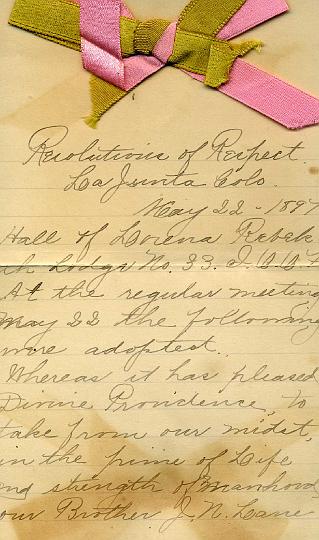 Resolutions of Respect.
La Junta Colo.
May 22 - 1897
Hall of Lorena Rebek
ah Lodge No. 33. I.O.O.F
At the regular meeting
May 22 the following
were adopted.
Whereas it has pleased
Divine Providence, to
take from our midst,
in the prime of Life
and strength of Manhood,
our Brother J. N. Lane